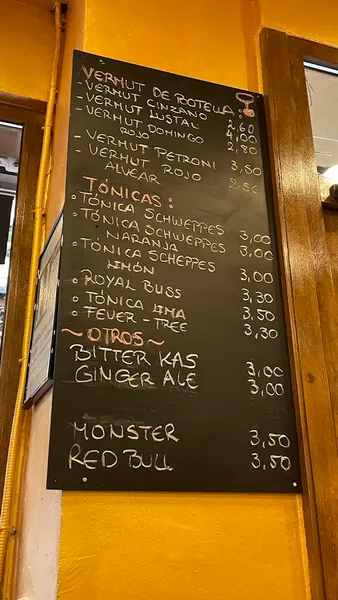 VERMUT DE BOTELLA:
- VERMUT CINZANO 2,60
- VERMUT LUSTAL 4,00
- VERMUT DOMINGO 2,80
ROJO
- VERMUT PETRONI 3,50
- VERMUT ROJO 2,50
ALVEAR
TÓNICAS:
• TÓNICA SCHWEPPES 3,00
• TÓNICA SCHWEPPES 3,00
NARANJA
• TÓNICA SCHEPPES 3,00
LIMÓN
• ROYAL BLISS 3,30
• TÓNICA 3,50
• FEVER-TREE 3,30
~ OTROS ~
BITTER KAS 3,00
GINGER ALE 3,00
MONSTER 3,50
RED BULL 3,50